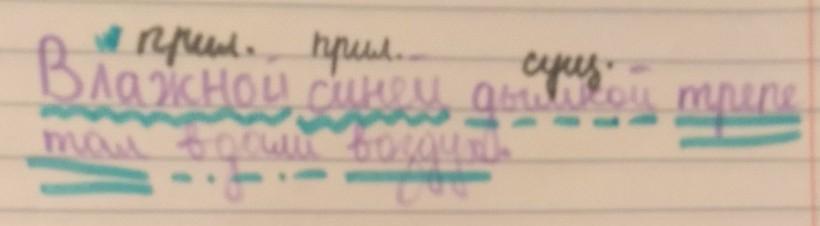 прил. прил. сущ.
Влажной синей дымкой трепе
тал вдали воздух.